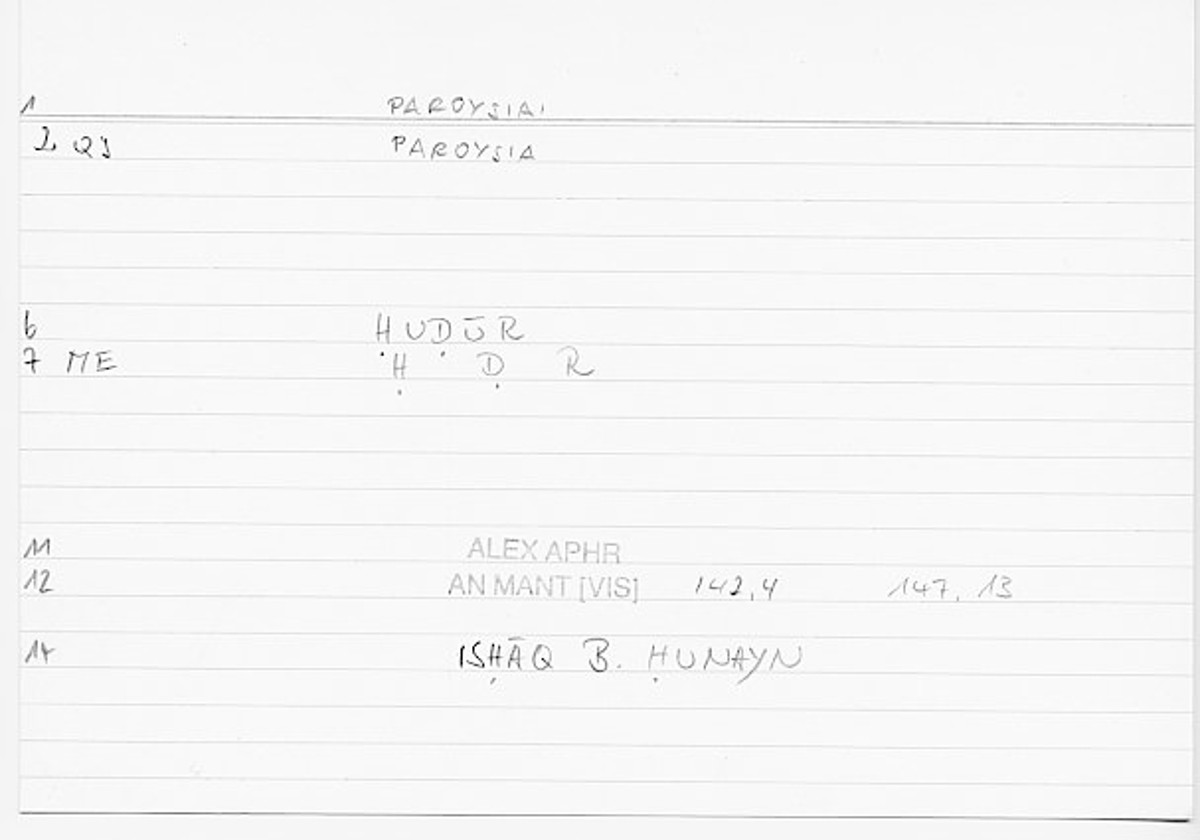 1 PAROYSIAI
2 QS PAROYSIA
6 ḤUḌŪR
7 ME Ḥ Ḍ R
11 ALEX APHR
12 AN MANT [VIS] 142,4 147, 13
14 ISḤĀQ B. ḤUNAYN